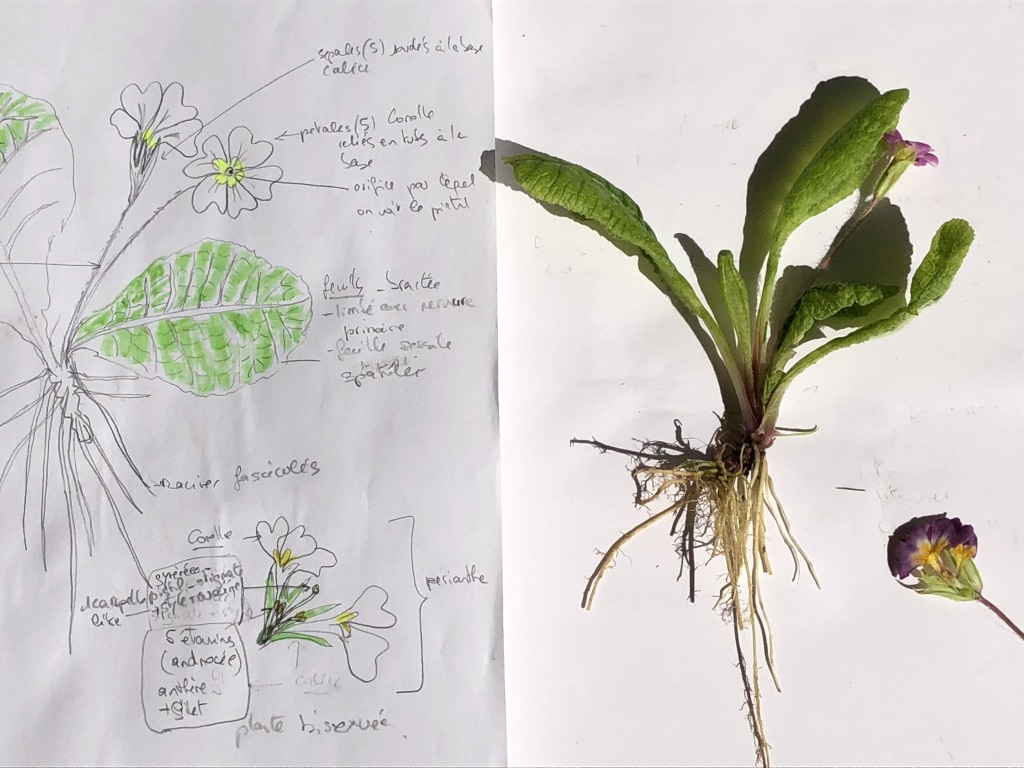 sépales (5) soudés à la base
calice
pétales (5) Corolle
reliés en tube à la
base
orifice par lequel
on voit le pistil
feuilles bractée
- limbe avec nervure
primaire
- feuille sessile
racines fasciculés
Corolle
périanthe
1 carpelle
like
5 étamines
(androcée)
anthère
+ filet
calice
plante bisexuée.